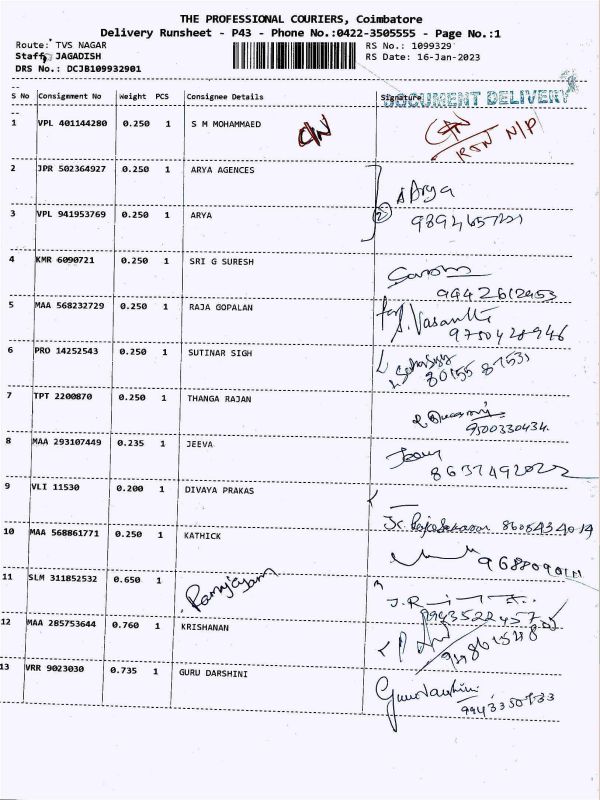 THE PROFESSIONAL COURIERS, Coimbatore
Delivery Runsheet - P43 - Phone No.:0422-3505555 - Page No.:1
Route: TVS NAGAR RS No.: 1099329
Staff: JAGADISH RS Date: 16-Jan-2023
DRS No.: DCJB109932901
DOCUMENT DELIVERY
S No Consignment No Weight PCS Consignee Details Signature
1 VPL 401144280 0.250 1 S M MOHAMMAED C/N C/N
RSN N/P
2 JPR 502364927 0.250 1 ARYA AGENCES Arya
3 VPL 941953769 0.250 1 ARYA 2
4 KMR 6090721 0.250 1 SRI G SURESH
9942612953
5 MAA 568232729 0.250 1 RAJA GOPALAN for S. Vasantha
9750428946
6 PRO 14252543 0.250 1 SUTINAR SIGH
80155 87531
7 TPT 2200870 0.250 1 THANGA RAJAN
9500330434
8 MAA 293107449 0.235 1 JEEVA Jeeva
8637492022
9 VLI 11530 0.200 1 DIVAYA PRAKAS
8608434014
10 MAA 568861771 0.250 1 KATHICK
11 SLM 311852532 0.650 1 Ramjayam J.R
9943522457
12 MAA 285753644 0.760 1 KRISHANAN
13 VRR 9023030 0.735 1 GURU DARSHINI Gurudarshini
9943350733